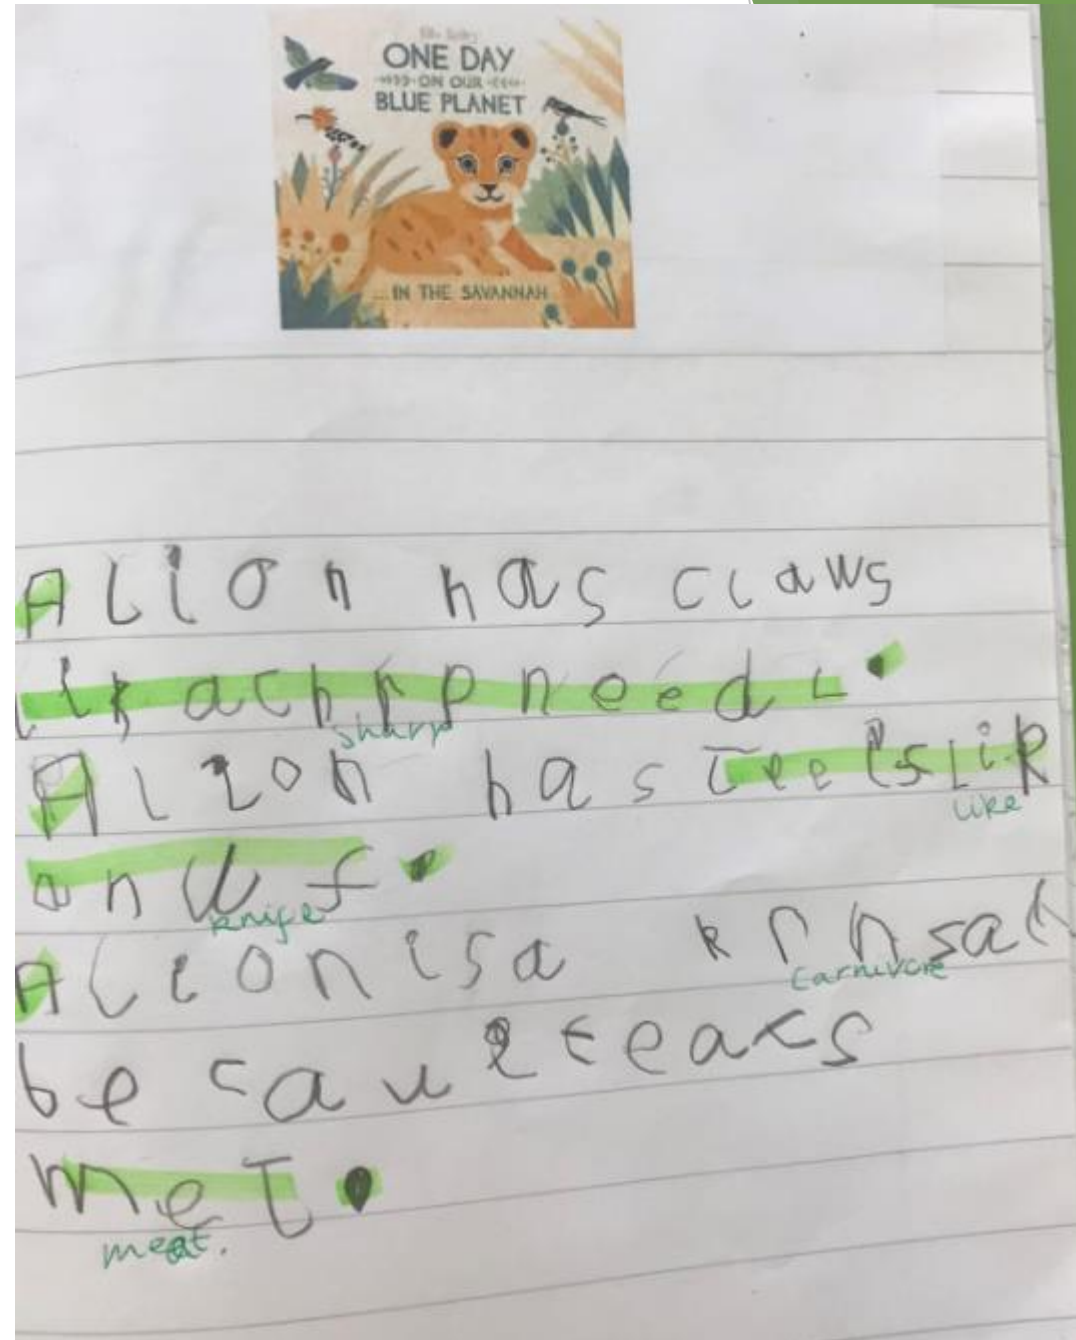 ONE DAY
ON OUR
BLUE PLANET
...IN THE SAVANNAH
A lion has claws
lik achrp need l.
sharp
A lion has teetslik
like
an f.
knife
A lion isa krnsa
carnivore
be cau eteats
met.
meat.